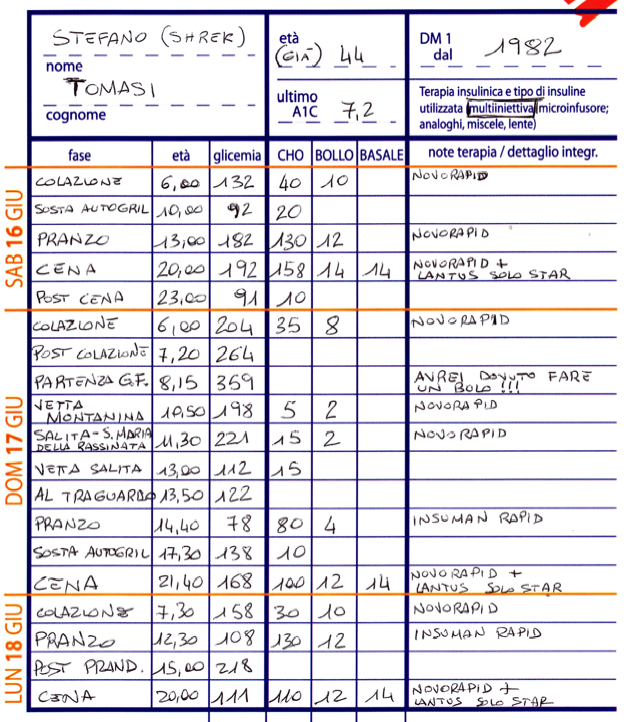 STEFANO (SHREK)
nome
TOMASI
cognome
età
(GIÀ) 44
ultimo
A1C 7,2
DM 1
dal 1982
Terapia insulinica e tipo di insuline
utilizzata (multiiniettiva/microinfusore;
analoghi, miscele, lente)
fase età glicemia CHO BOLLO BASALE note terapia / dettaglio integr.
SAB 16 GIU
COLAZIONE 6,00 132 40 10 NOVORAPID
SOSTA AUTOGRIL 10,00 92 20
PRANZO 13,00 182 130 12 NOVORAPID
CENA 20,00 192 158 14 14 NOVORAPID +
LANTUS SOLO STAR
POST CENA 23,00 91 10
DOM 17 GIU
COLAZIONE 6,00 204 35 8 NOVORAPID
POST COLAZIONE 7,20 264
PARTENZA G.F. 8,15 359 AVREI DOVUTO FARE
UN BOLO !!!
VETTA
MONTANINA 10,50 198 5 2 NOVORAPID
SALITA - S. MARIA
DELLA RASSINATA 11,30 221 15 2 NOVORAPID
VETTA SALITA 13,00 112 15
AL TRAGUARDO 13,50 122
PRANZO 14,40 78 80 4 INSUMAN RAPID
SOSTA AUTOGRIL 17,30 138 10
CENA 21,40 168 100 12 14 NOVORAPID +
LANTUS SOLO STAR
LUN 18 GIU
COLAZIONE 7,30 158 30 10 NOVORAPID
PRANZO 12,30 108 130 12 INSUMAN RAPID
POST PRAND. 15,00 218
CENA 20,00 111 110 12 14 NOVORAPID +
LANTUS SOLO STAR